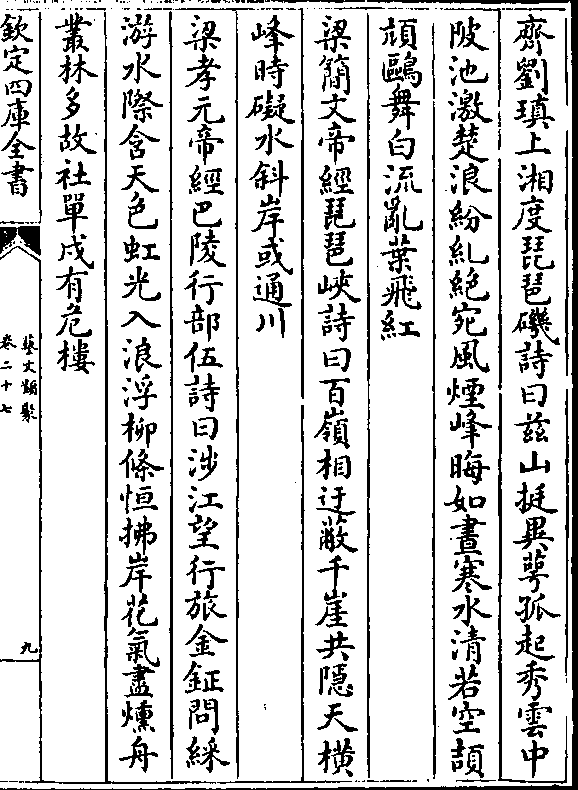 齊劉瑱上湘度琵琶磯詩曰茲山挺異萼孤起秀雲中
陂池激楚浪紛糺絶宛風煙峰晦如晝寒水清若空頡
頏鷗舞白流亂葉飛紅
梁簡文帝經琵琶峽詩曰百嶺相迂蔽千崖共隱天橫
峰時礙水斜岸或通川
梁孝元帝經巴陵行部伍詩曰涉江望行旅金鉦問綵
游水際含天色虹光入浪浮柳條恒拂岸花氣盡燻舟
叢林多故社單戍有危樓
欽定四庫全書
藝文類聚
卷二十七
九